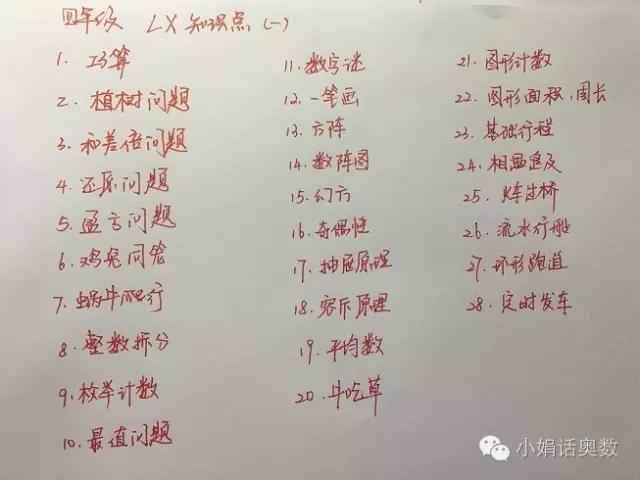 四年级 LX知识点(一)
1. 巧算
2. 植树问题
3. 和差倍问题
4. 还原问题
5. 盈亏问题
6. 鸡兔同笼
7. 蜗牛爬行
8. 整数拆分
9. 枚举计数
10. 最值问题
11. 数字谜
12. 一笔画
13. 方阵
14. 数阵图
15. 幻方
16. 奇偶性
17. 抽屉原理
18. 容斥原理
19. 平均数
20. 牛吃草
21. 图形计数
22. 图形面积、周长
23. 基础行程
24. 相遇追及
25. 火车过桥
26. 流水行船
27. 环形跑道
28. 定时发车
小娟话奥数